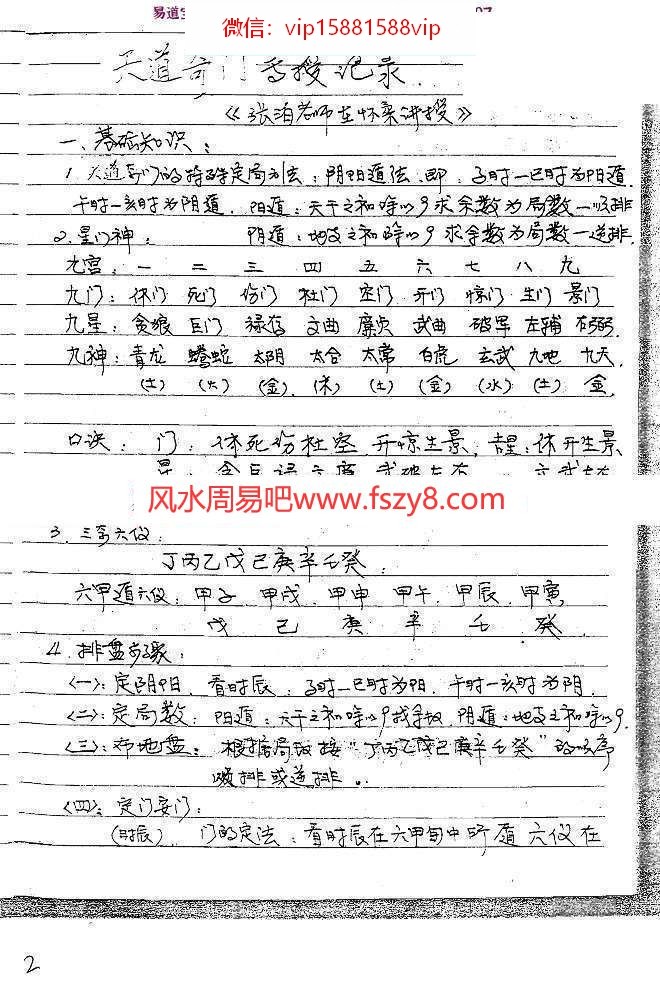 易道
微信：vip15881588vip
天道奇门面授记录
《张泊老师在怀柔讲授》
一、基础知识：
1. 天道奇门的特殊定局方法：阴阳遁法，即，子时一巳时为阳遁，
午时一亥时为阴遁，阳遁：天干之和除以9求余数为局数一顺排
2. 星门神： 阴遁：地支之和除以9求余数为局数一逆排
九宫：一 二 三 四 五 六 七 八 九
九门：休门 死门 伤门 杜门 空门 开门 惊门 生门 景门
九星：贪狼 巨门 禄存 文曲 廉贞 武曲 破军 左辅 右弼
九神：青龙 螣蛇 太阴 六合 太常 白虎 玄武 九地 九天
(土) (火) (金) (木) (土) (金) (水) (土) 金
口诀：门：休死伤杜空，开惊生景，吉星：休开生景
风水周易吧www.fszy8.com
3. 三奇六仪：
丁丙乙戊己庚辛壬癸
六甲遁六仪：甲子 甲戌 甲申 甲午 甲辰 甲寅
戊 己 庚 辛 壬 癸
4. 排盘步骤：
〈一〉：定阴阳，看时辰：子时一巳时为阳，午时一亥时为阴
〈二〉：定局数：阳遁：天干之和除以9求余数，阴遁：地支之和除以9
〈三〉：布地盘：根据局数按"丁丙乙戊己庚辛壬癸"的顺序
顺排或逆排。
〈四〉：定门安门：
(时辰) 门的定法：看时辰在六甲旬中所遁六仪在
2